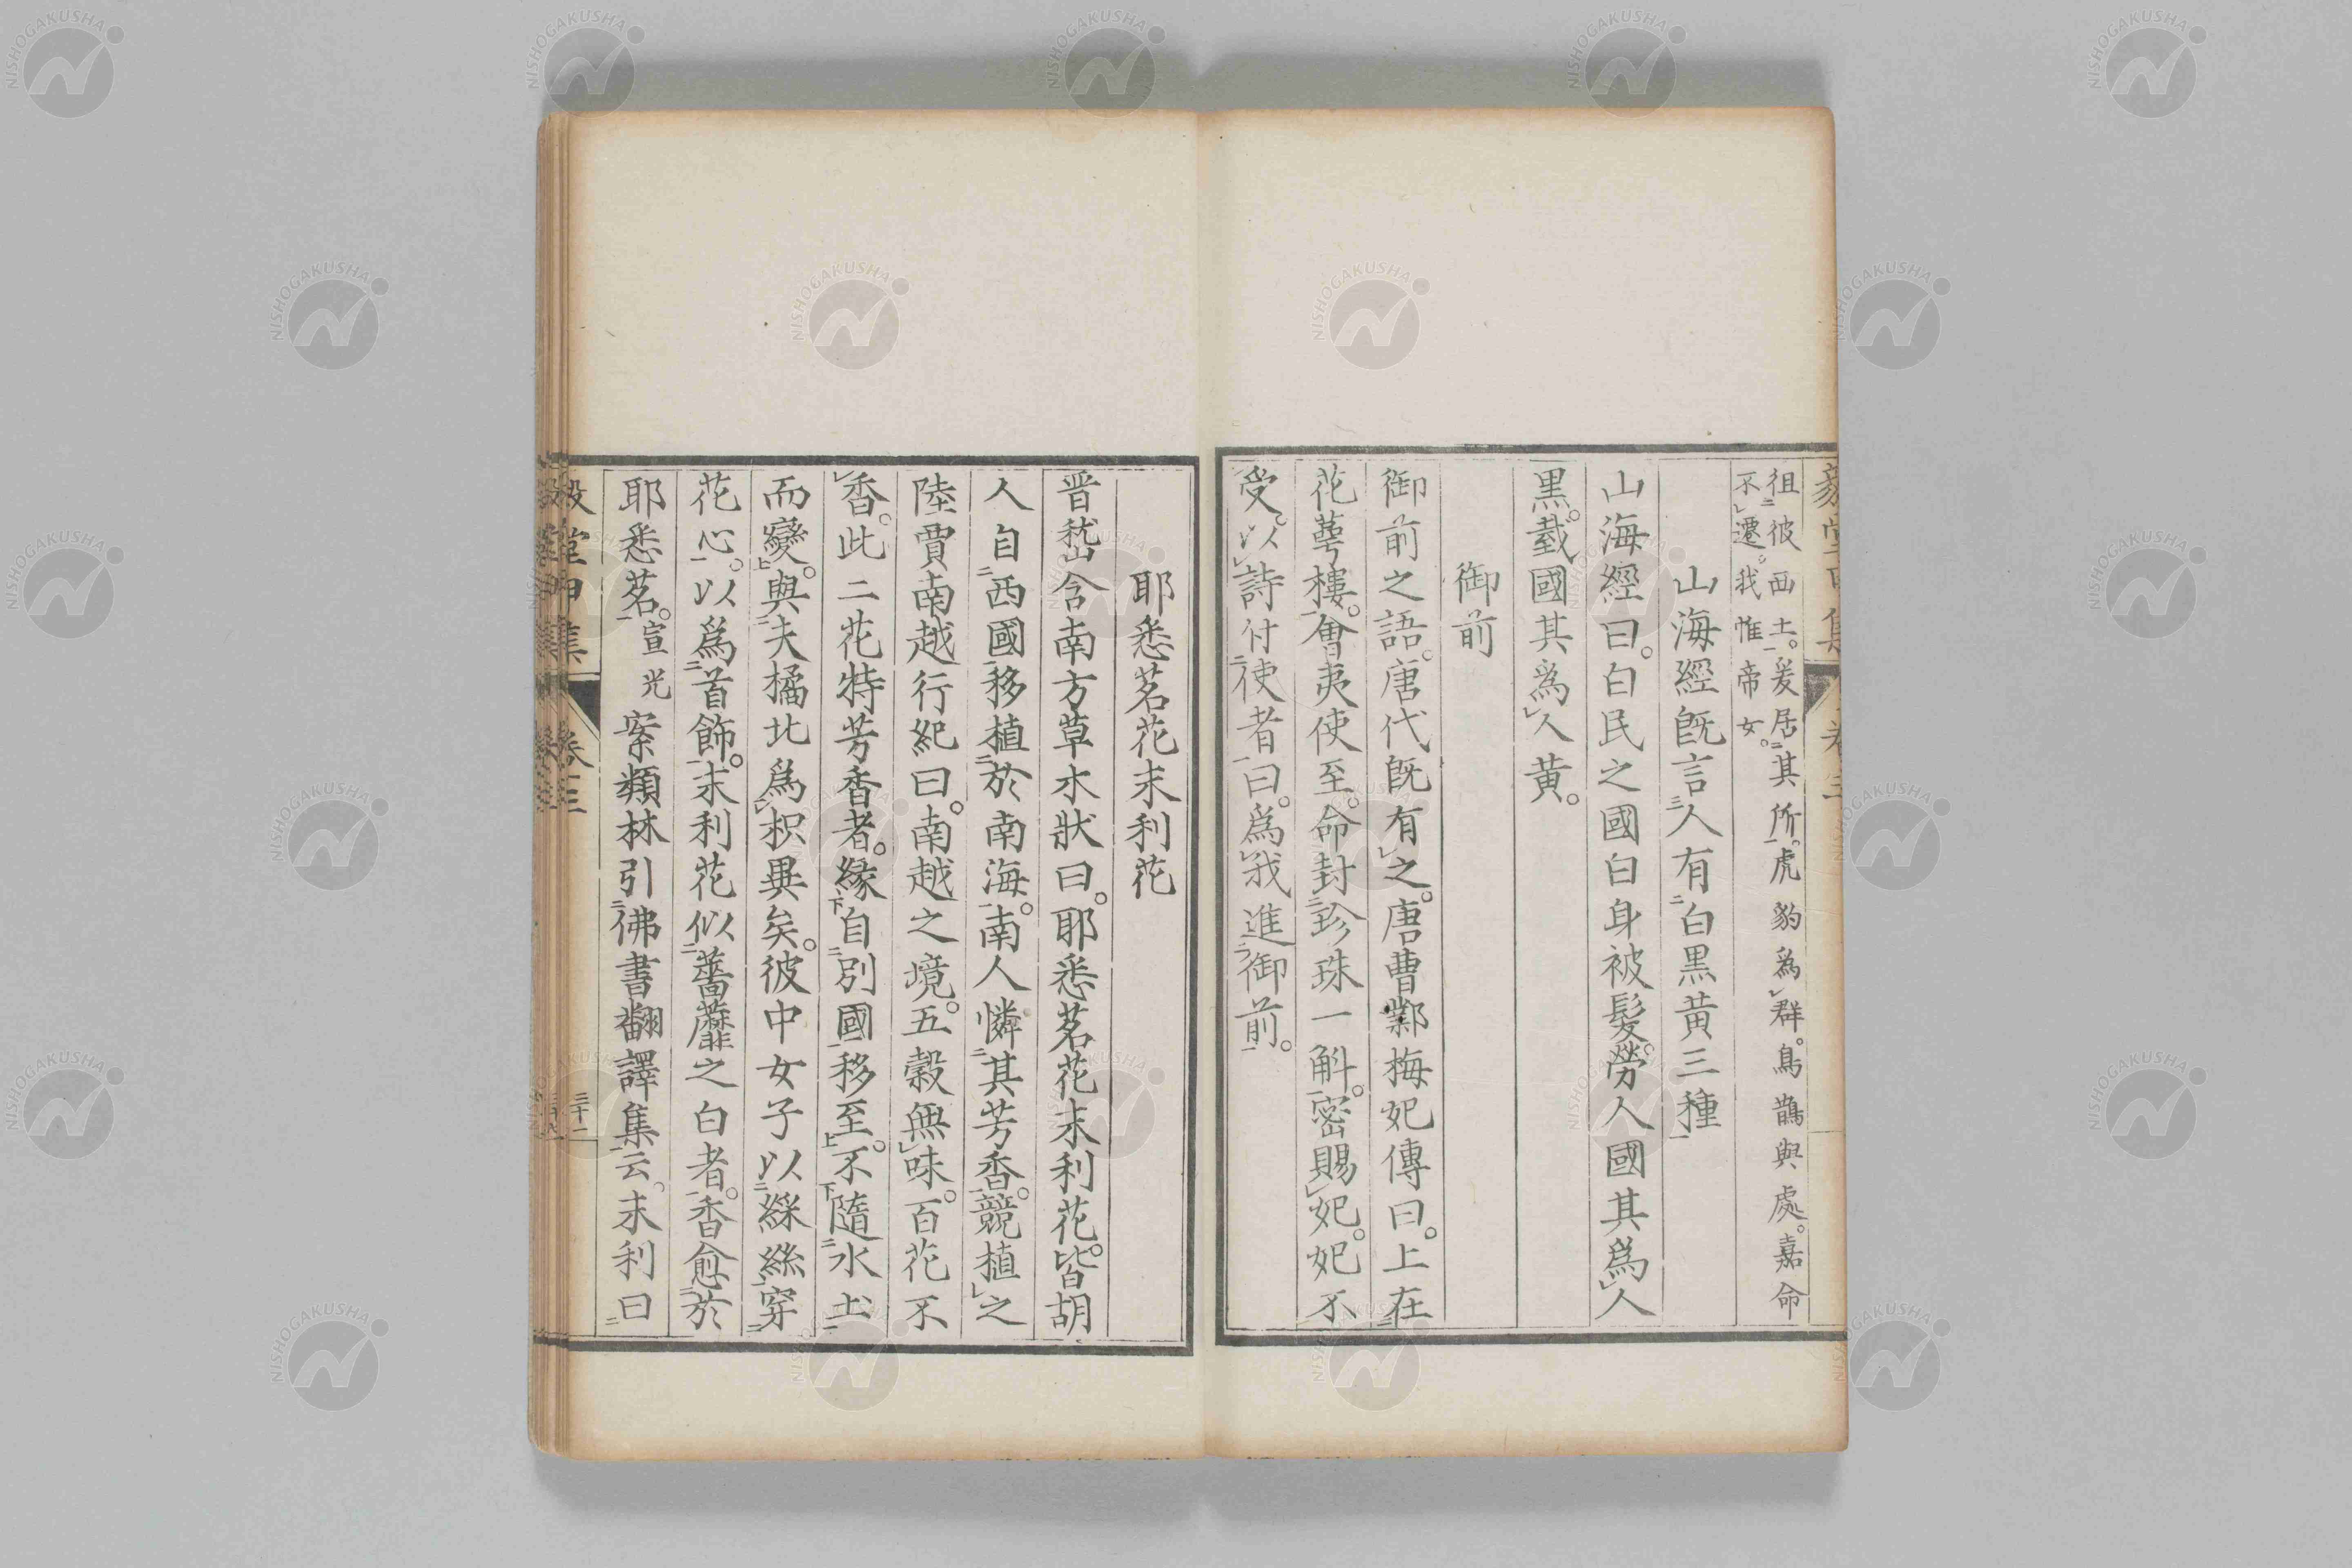 徂彼西土。爰居其所。虎豹爲群。鳥鵲與處。嘉命
不遷。我惟帝女。
山海經旣言人有白黒黃三種
山海經曰。白民之國白身被髮。勞人國其爲人
黒。臷國其爲人黄。
御前
御前之語。唐代旣有之。唐曹鄴梅妃傳曰。上在
花萼樓。會夷使至。命封珍珠一斛。密賜妃。妃不
受。以詩付使者曰。爲我進御前。
耶悉茗花末利花
晋嵇含南方草木狀曰。耶悉茗花末利花。皆胡
人自西國移植於南海。南人憐其芳香。競植之
陸賈南越行紀曰。南越之境。五穀無味。百花不
香。此二花特芳香者。緣自別國移至。不隨水土
而變。與夫橘北爲枳異矣。彼中女子以綵絲穿
花心。以爲首飾。末利花似薔蘼之白者。香愈於
耶悉茗。宣光案類林引佛書翻譯集云。末利曰
毅堂丙集
卷三
三十二
NISHOGAKUSHA